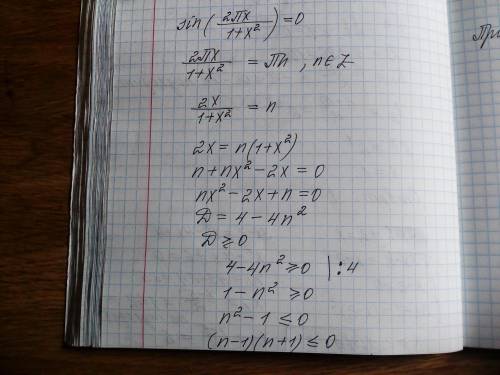 sin(2πx/(1+x²)) = 0
2πx/(1+x²) = πn, n∈Z
2x/(1+x²) = n
2x = n(1+x²)
n+nx²-2x = 0
nx²-2x+n=0
D = 4-4n²
D ≥ 0
4-4n² ≥ 0 |:4
1-n² ≥ 0
n²-1 ≤ 0
(n-1)(n+1) ≤ 0
При